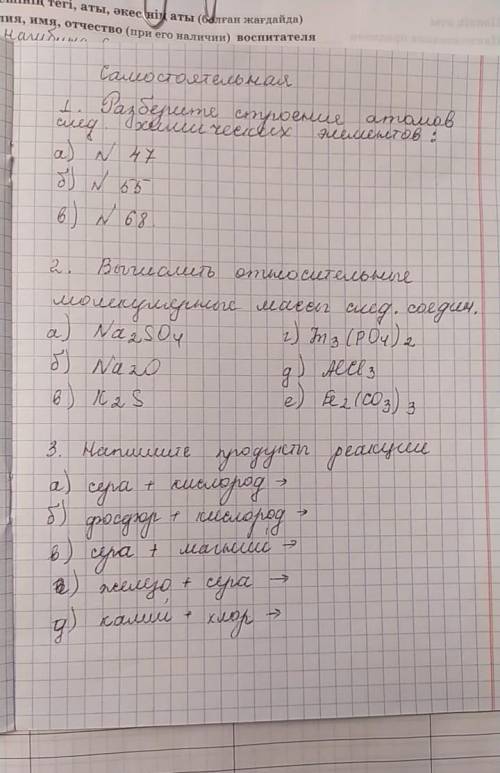 тегі, аты, әкесінің аты (болған жағдайда)
имя, отчество (при его наличии) воспитателя
Самостоятельная
1. Разберите строение атомов
след. химических элементов:
а) N 47
б) N 55
в) N 68
2. Вычислить относительные
молекулярные массы след. соедин.
а) Na2SO4
г) Zn3(PO4)2
б) Na2O
д) AlCl3
в) K2S
е) Fe2(CO3)3
3. Напишите продукты реакции
а) сера + кислород →
б) фосфор + кислород →
в) сера + магний →
г) железо + сера →
д) калий + хлор →